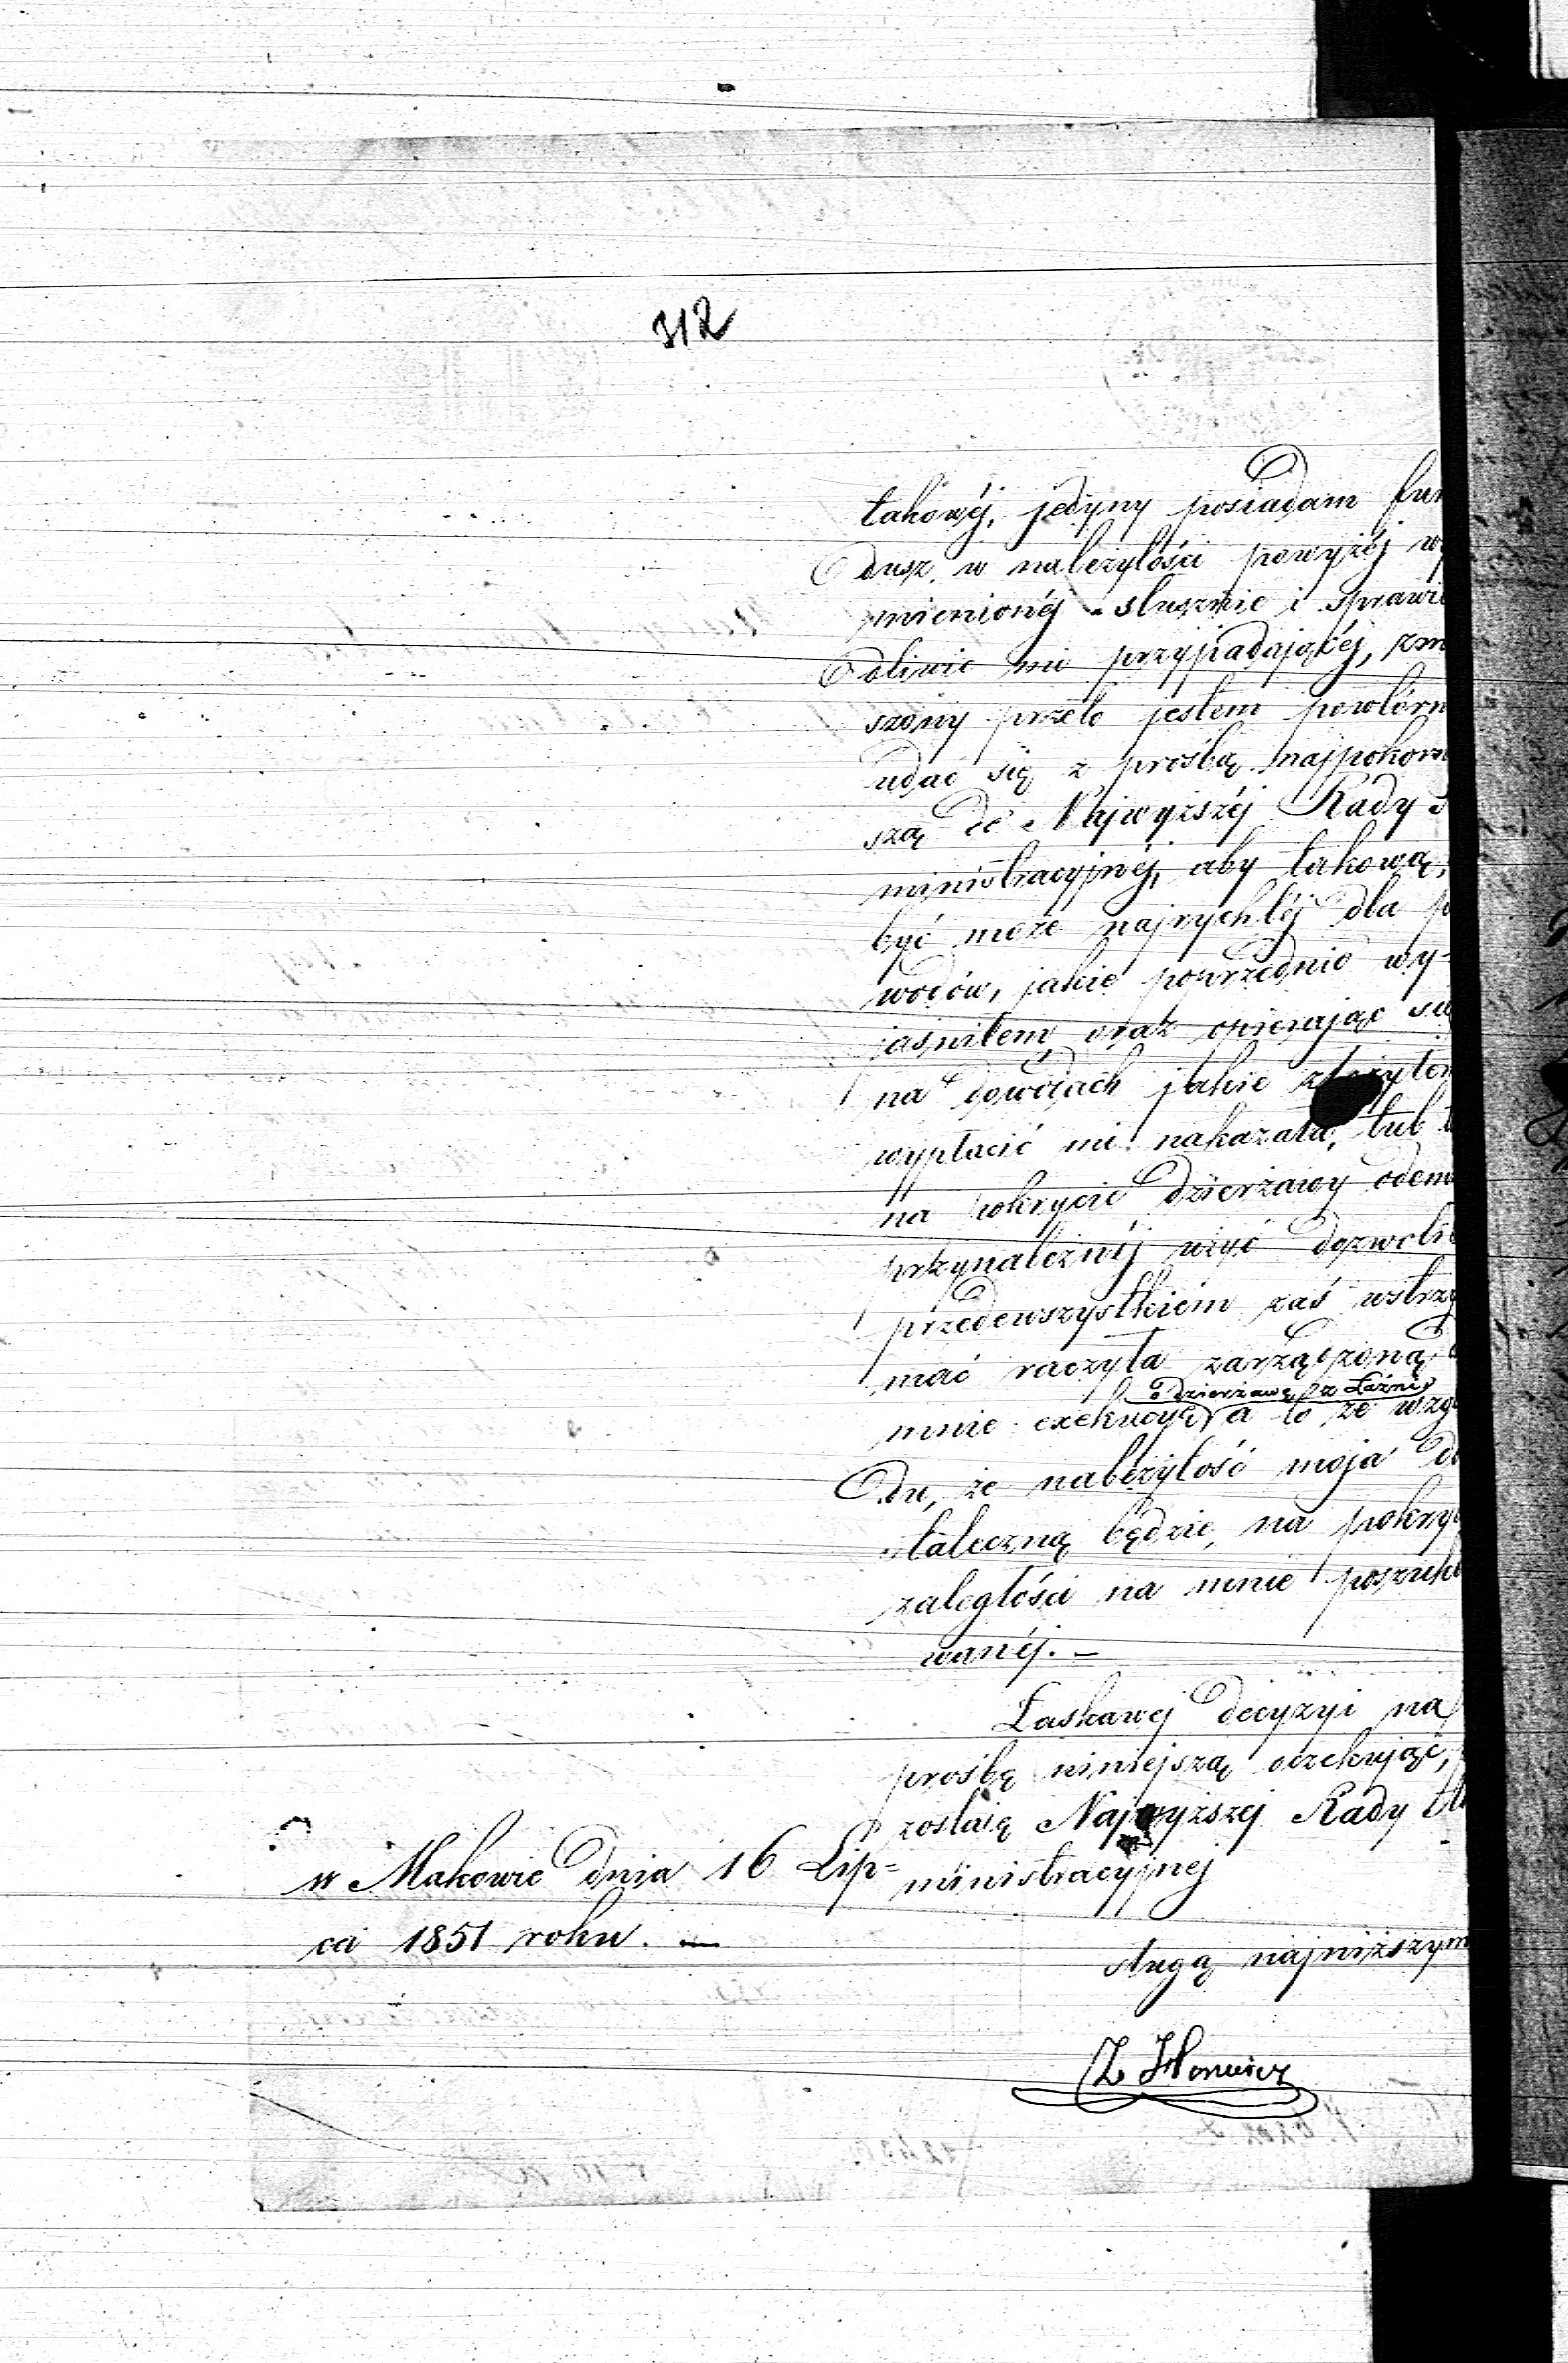 312
takowéj, jedyny posiadam fun
dusz w należytości powyżéj wy
mienionéj słusznie i sprawie
dliwie mi przypadającéj, zm
szony przeto jestem powtórn
udać się z prośbą najpokorn
szą do Najwyższéj Rady
ministracyjnéj, aby takową,
być może najrychléj dla p
wodów, jakie poprzednio wy-
jaśniłem oraz opierając się
na dowodach jakie złożyłem
wypłacić mi nakazała, lub t
na pokrycie dzierżawy odem
przynależnéj użyć dozwolić
przedewszystkiém zaś wstrzy
mać raczyła zarządzoną
o dzierżawę z Łaźni
mnie exekucyę a to ze wzglę
du, że należytość moja do
stateczną będzie, na pokryc
zaległości na mnie poszuki
wanéj. –
Łaskawej decyzyi na
prośbę niniejszą oczekując,
zostaię Najwyższej Rady
ministracyjnej
w Makowie dnia 16 Lip=
ca 1851 roku. —
sługą najniższym